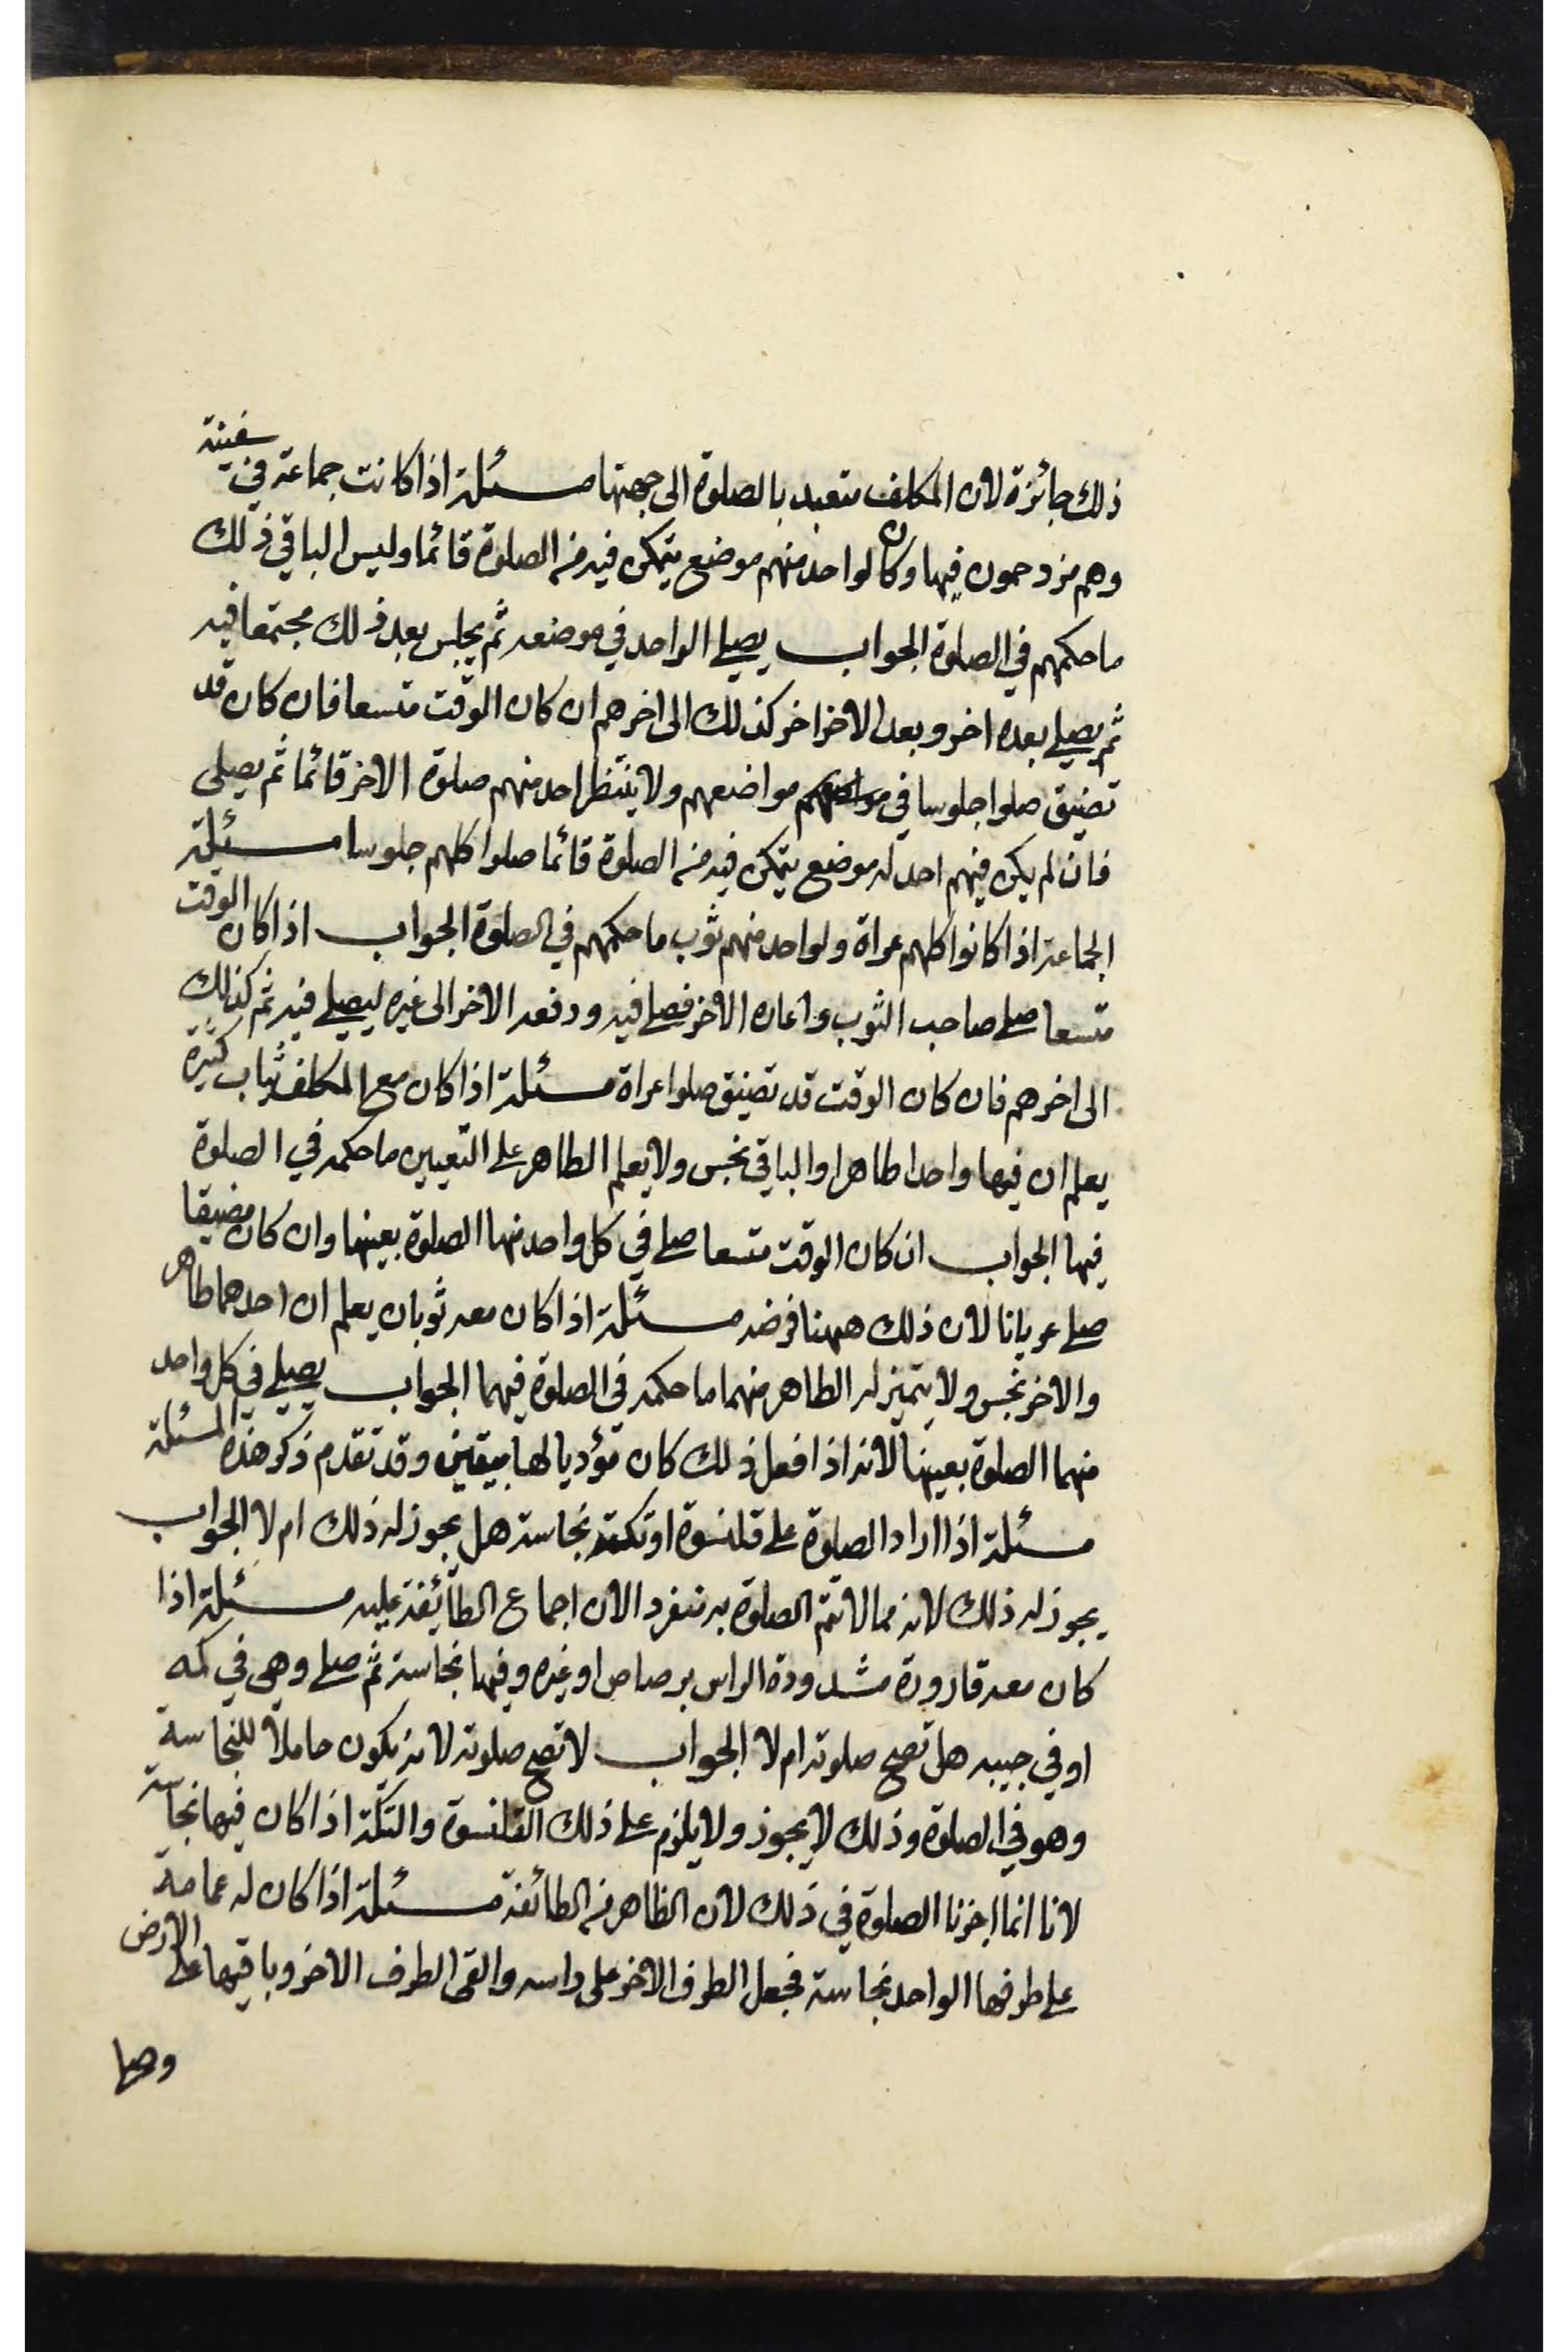 ذلك جائزة لان المكلف متعبد بالصلوة الى جهتها مسئلة اذا كانت جماعة في سفينة
وهم مزدحمون فيها وكان لواحد منهم موضع يتمكن فيه من الصلوة قائما وليس الباقي ذلك
ما حكمهم في الصلوة الجواب يصلى الواحد في موضعه ثم يجلس بعد ذلك مجتمعا فيه
ثم يصلى بعده اخر وبعد الاخر اخر كذلك الى اخرهم ان كان الوقت متسعا فان كان قد
تضيق صلوا جلوسا في مواضعهم ولا ينتظر احد منهم صلوة الاخر قائما ثم يصلى
فان لم يكن فيهم احد له موضع يتمكن فيه من الصلوة قائما صلوا كلهم جلوسا مسئلة
الجماعة اذا كانوا كلهم عراة ولواحد منهم ثوب ما حكمهم في الصلوة الجواب اذا كان الوقت
متسعا صلى صاحب الثوب واعاره الاخر فصلى فيه ودفعه الاخر الى غيره ليصلى فيه ثم كذلك
الى اخرهم فان كان الوقت قد تضيق صلوا عراة مسئلة اذا كان مع المكلف ثياب كثيرة
يعلم ان فيها واحدا طاهرا والباقي نجس ولا يعلم الطاهر على التعيين ما حكمه في الصلوة
فيها الجواب ان كان الوقت متسعا صلى في كل واحد منها الصلوة بعينها وان كان مضيقا
صلى عريانا لان ذلك ههنا فرضه مسئلة اذا كان معه ثوبان يعلم ان احدهما طاهر
والاخر نجس ولا يتميز له الطاهر منهما ما حكمه في الصلوة فيهما الجواب يصلى في كل واحد
منهما الصلوة بعينها لانه اذا فعل ذلك كان مؤديا لها بيقين وقد تقدم ذكر هذه المسئلة
مسئلة اذا اراد الصلوة على قلنسوة او تكة نجاسة هل يجوز له ذلك ام لا الجواب
يجوز له ذلك لانه مما لا تتم الصلوة به منفرد الان اجماع الطائفة عليه مسئلة اذا
كان معه قارورة مشدودة الراس برصاص او غيره وفيها نجاسة ثم صلى وهي في كمه
او في جيبه هل تصح صلوته ام لا الجواب لا تصح صلوته لانه يكون حاملا للنجاسة
وهو في الصلوة وذلك لا يجوز ولا يلزم على ذلك القلنسوة والتكة اذا كان فيها نجاسة
لانا انما اجزنا الصلوة في ذلك لان الظاهر من الطائفة مسئلة اذا كان له عمامة
على طرفها الواحد نجاسة فجعل الطرف الاخر على راسه والقى الطرف الاخر وباقيها على الارض
وصلى